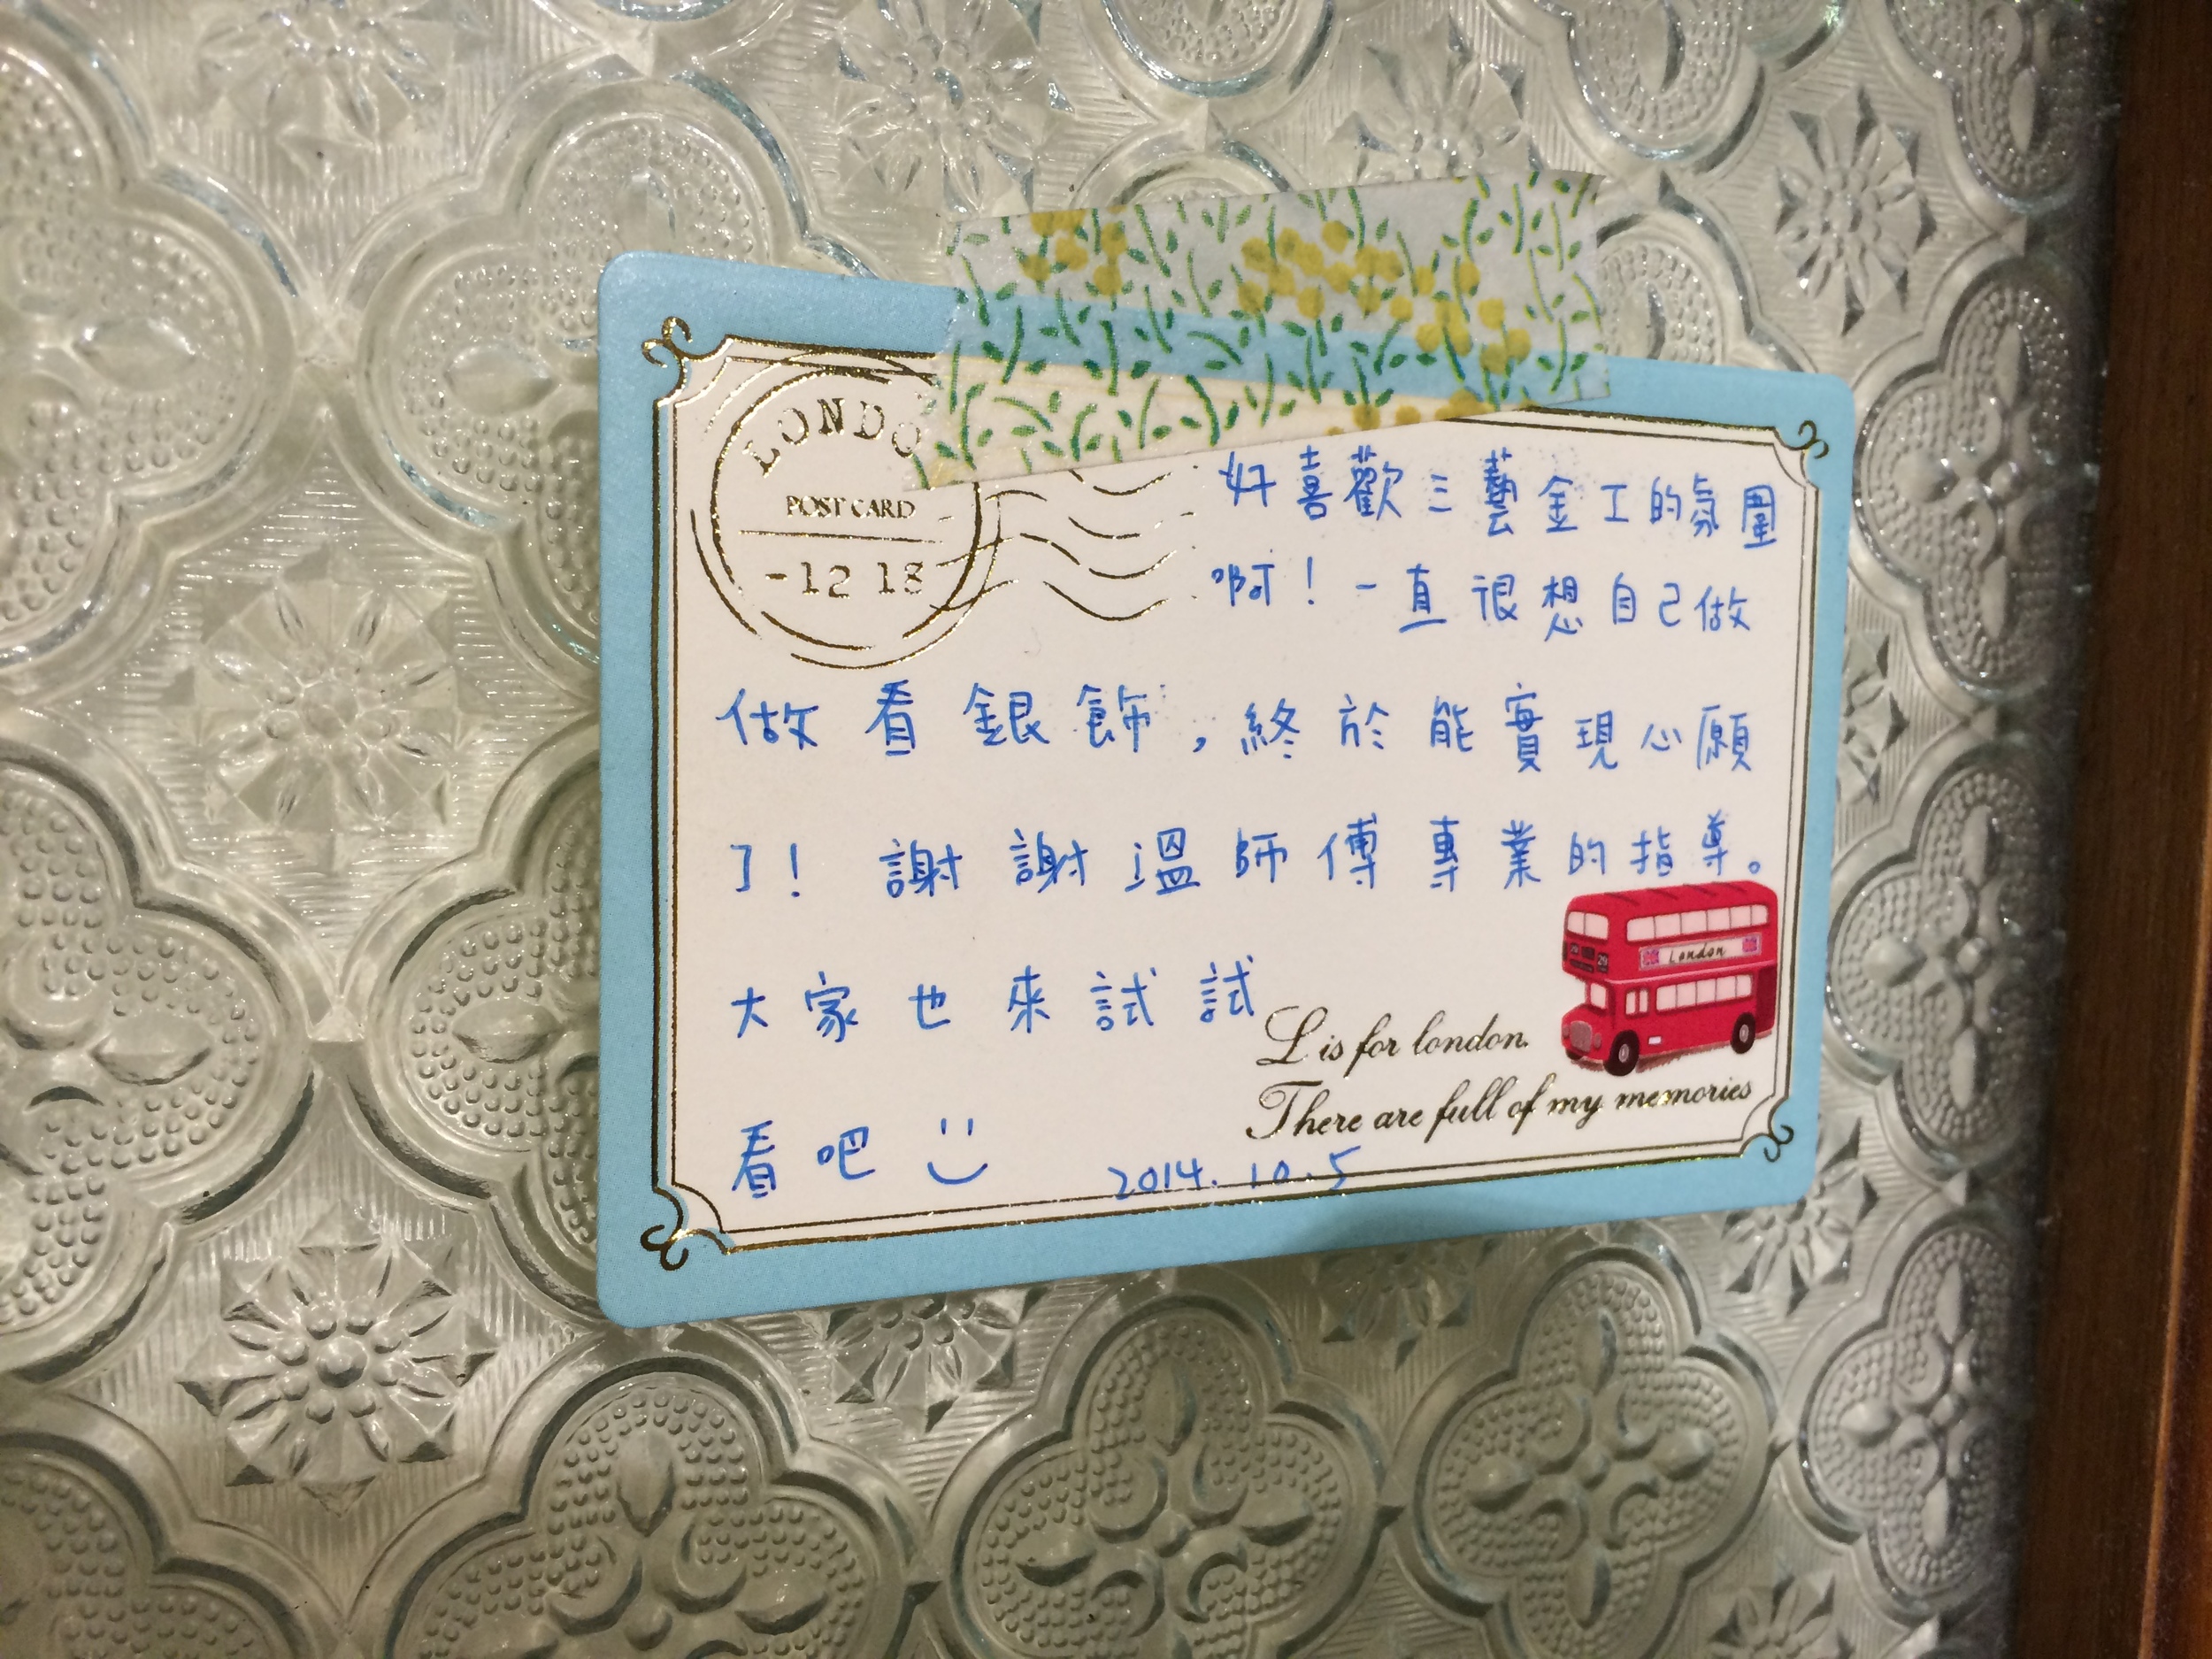 LONDO
POST CARD
-12 18
好喜歡三藝金工的氛圍
啊！一直很想自己做
做看銀飾，終於能實現心願
了！謝謝溫師傅專業的指導。
大家也來試試
London
L is for london.
There are full of my memories
看吧
2014.10.5